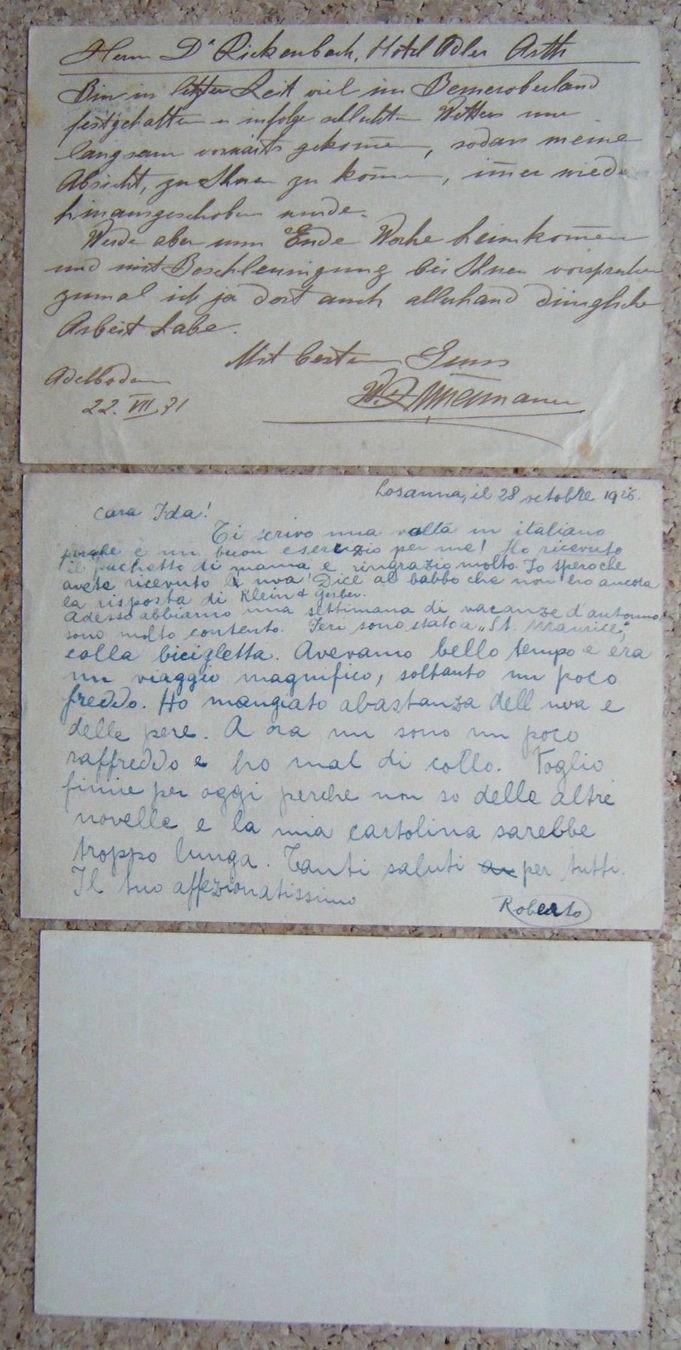 Herrn Dr Rickenbach, Hotel Adler Arth
Bin in letzter Zeit viel im Berneroberland
festgehalten u infolge schlechten Wetters nur
langsam vorwärts gekom̄en, sodass meine
Absicht, zu Ihnen zu kom̄en, im̄er wieder
hinausgeschoben wurde.
Werde aber nun Ende Woche heimkom̄en
und mit Beschleunigung bei Ihnen vorsprechen
zumal ich ja dort auch allerhand dringliche
Arbeit habe.
Mit bestem Gruss
Adelboden
22. VII. 21
Losanna, il 28 octobre 1926.
Cara Ida!
Ti scrivo una volta in italiano
perche è un buon esercizio per me! Ho ricevuto
il pachetto di mama e ringrazio molto. Io spero che
avete ricevuto l'uva! Dice al babbo che non ho ancora
la risposta di Klein & Gerber.
Adesso abbiamo una settimana di vacanze d'autunno
sono molto contento. Ieri sono stato a „St. Maurice"
colla bicigletta. Avevamo bello tempo e era
un viaggio magnifico, soltanto un poco
freddo. Ho mangiato abastanza dell uva e
delle pere. A ora mi sono un poco
raffreddo e ho mal di collo. Voglio
finire per oggi perche non so delle altre
novelle e la mia cartolina sarebbe
troppo lunga. Tanti saluti per tutti.
Il tuo affezionatissimo
Roberto